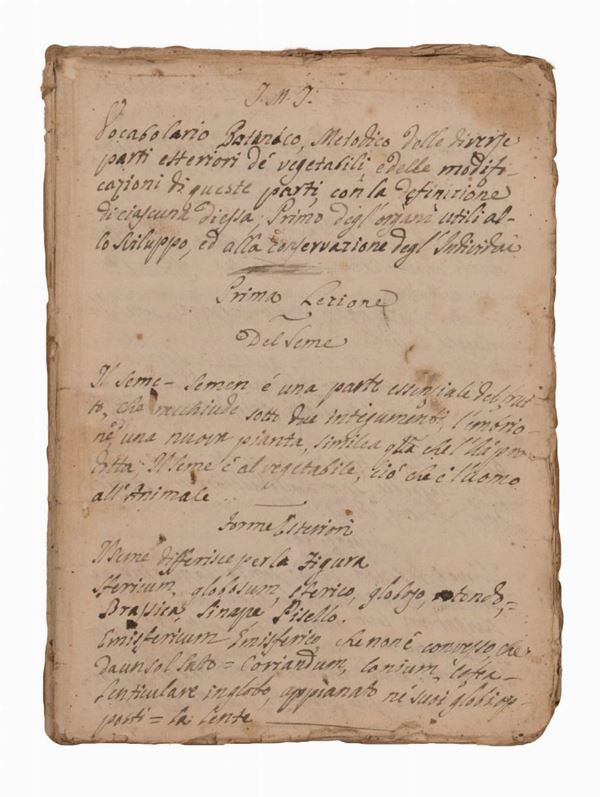 J. M. J.
Vocabolario Botanico, Metodico delle diverse
parti esteriori de' vegetabili, e delle modifi-
cazioni di queste parti, con la definizione
di ciascuna d'essa; Primo degl'organi utili al-
lo Sviluppo, ed alla conservazione degl'Individui
Prima Lezione
Del Seme
Il Seme - Semen é una parte essenziale del frut-
to, che racchiude sotto due integumenti, l'embrio-
ne, una nuova pianta, simile a qlla che l'há pro-
dotta; Il Seme é al vegetabile, ció che é l'uomo
all'Animale
Forme Esteriori
Il Seme differisce per la Figura
Sfericum, globosum, sferico, globoso, rotondo, =
Brassica, Sinapa, Pisello.
Emisfericum Emisferico, che non é convesso che
da un sol lato = Coriandum, conium,
Lenticulare inglobo, appianato ne' suoi globi op-
posti = la Lente